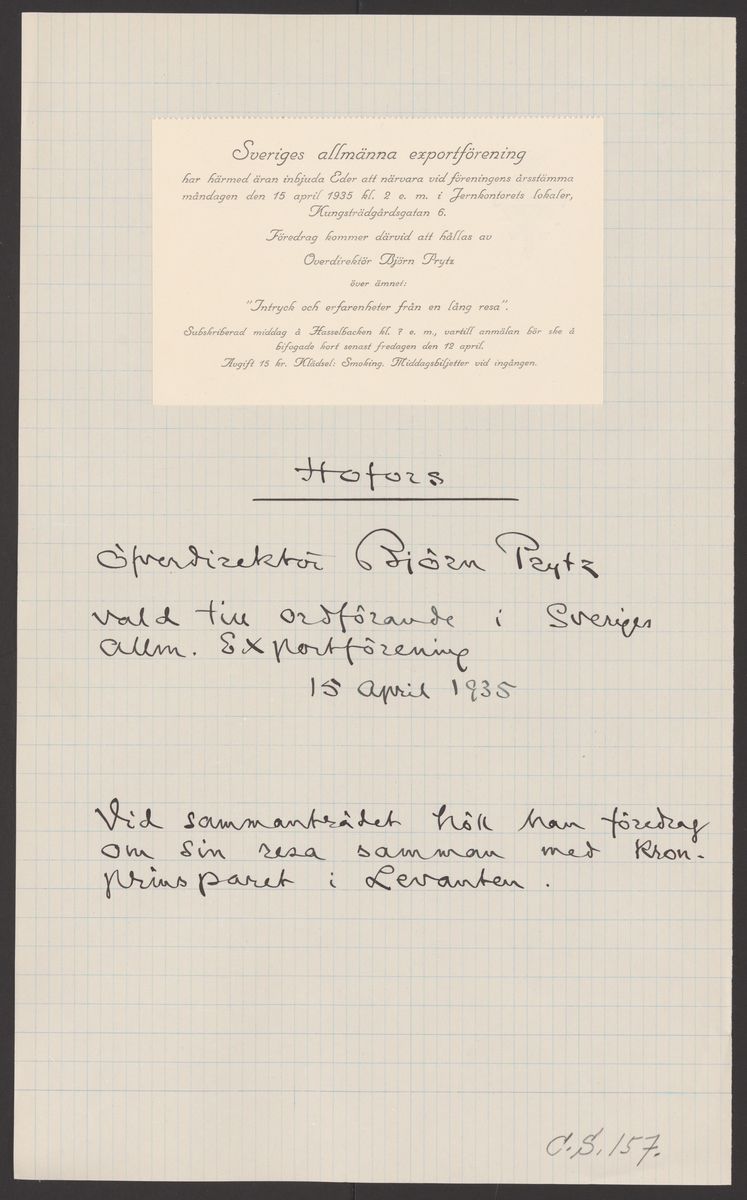 Sveriges allmänna exportförening
har härmed äran inbjuda Eder att närvara vid föreningens årsstämma
måndagen den 15 april 1935 kl. 2 e. m. i Jernkontorets lokaler,
Kungsträdgårdsgatan 6.
Föredrag kommer därvid att hållas av
Överdirektör Björn Prytz
över ämnet:
"Intryck och erfarenheter från en lång resa".
Subskriberad middag å Hasselbacken kl. 7 e. m., vartill anmälan bör ske å
bifogade kort senast fredagen den 12 april.
Avgift 15 kr. Klädsel: Smoking. Middagsbiljetter vid ingången.
Hofors
Öfverdirektör Björn Prytz
vald till ordförande i Sveriges
Allm. Exportförening
15 April 1935
Vid sammanträdet höll han föredrag
om sin resa samman med Kron-
prinsparet i Levanten.
C.S. 157.